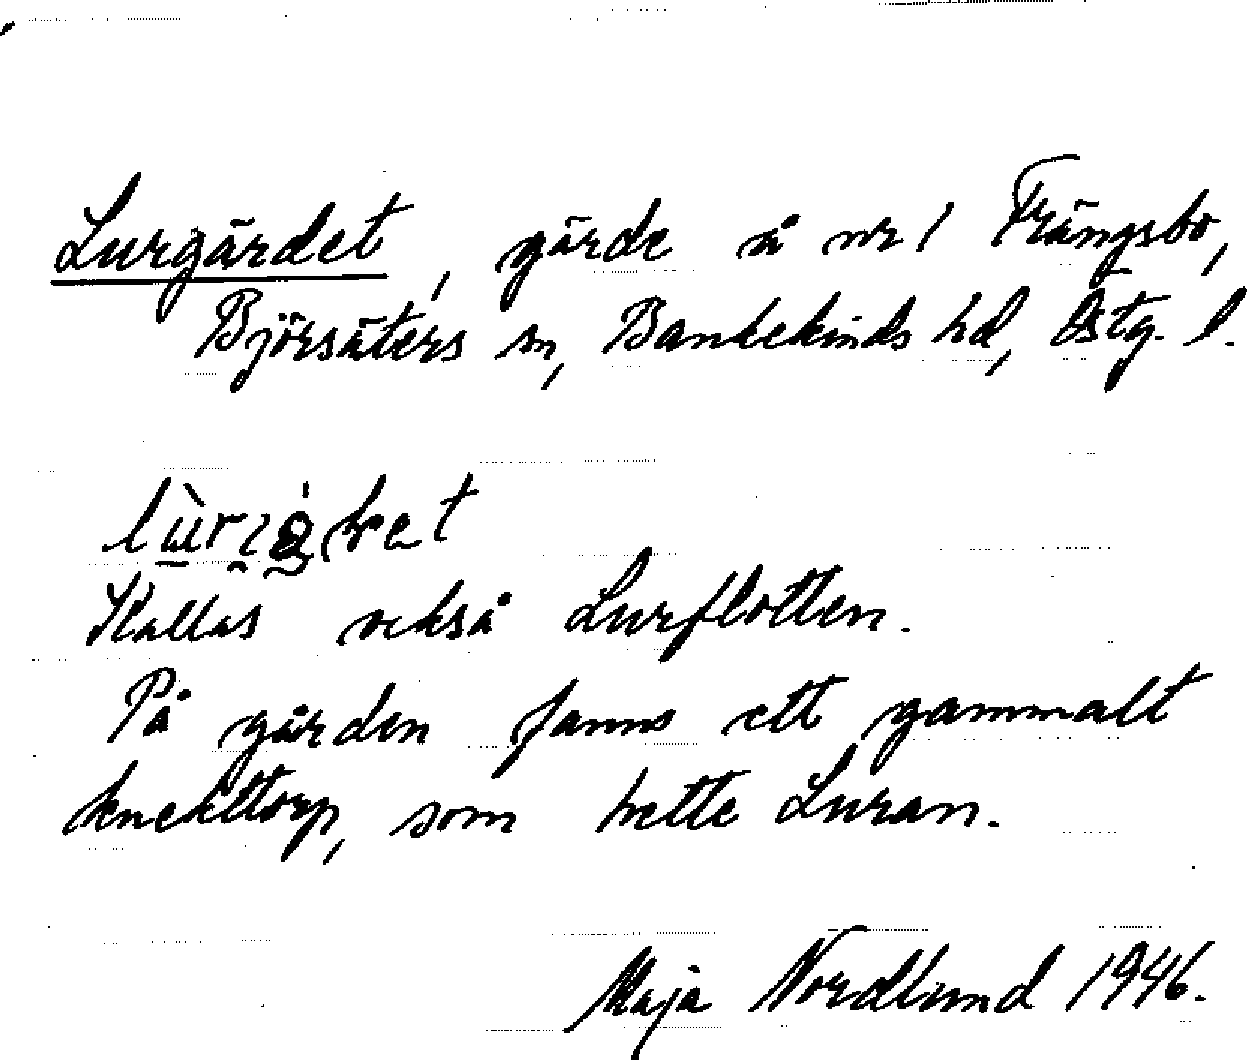 Lurgärdet, gärde å nr 1 Frängsbo,
Björsäters sn, Bankekinds hd, Östg. l.
Kallas också Lurflotten.
På gården fanns ett gammalt
knekttorp, som hette Luran.
Maja Nordlund 1946.